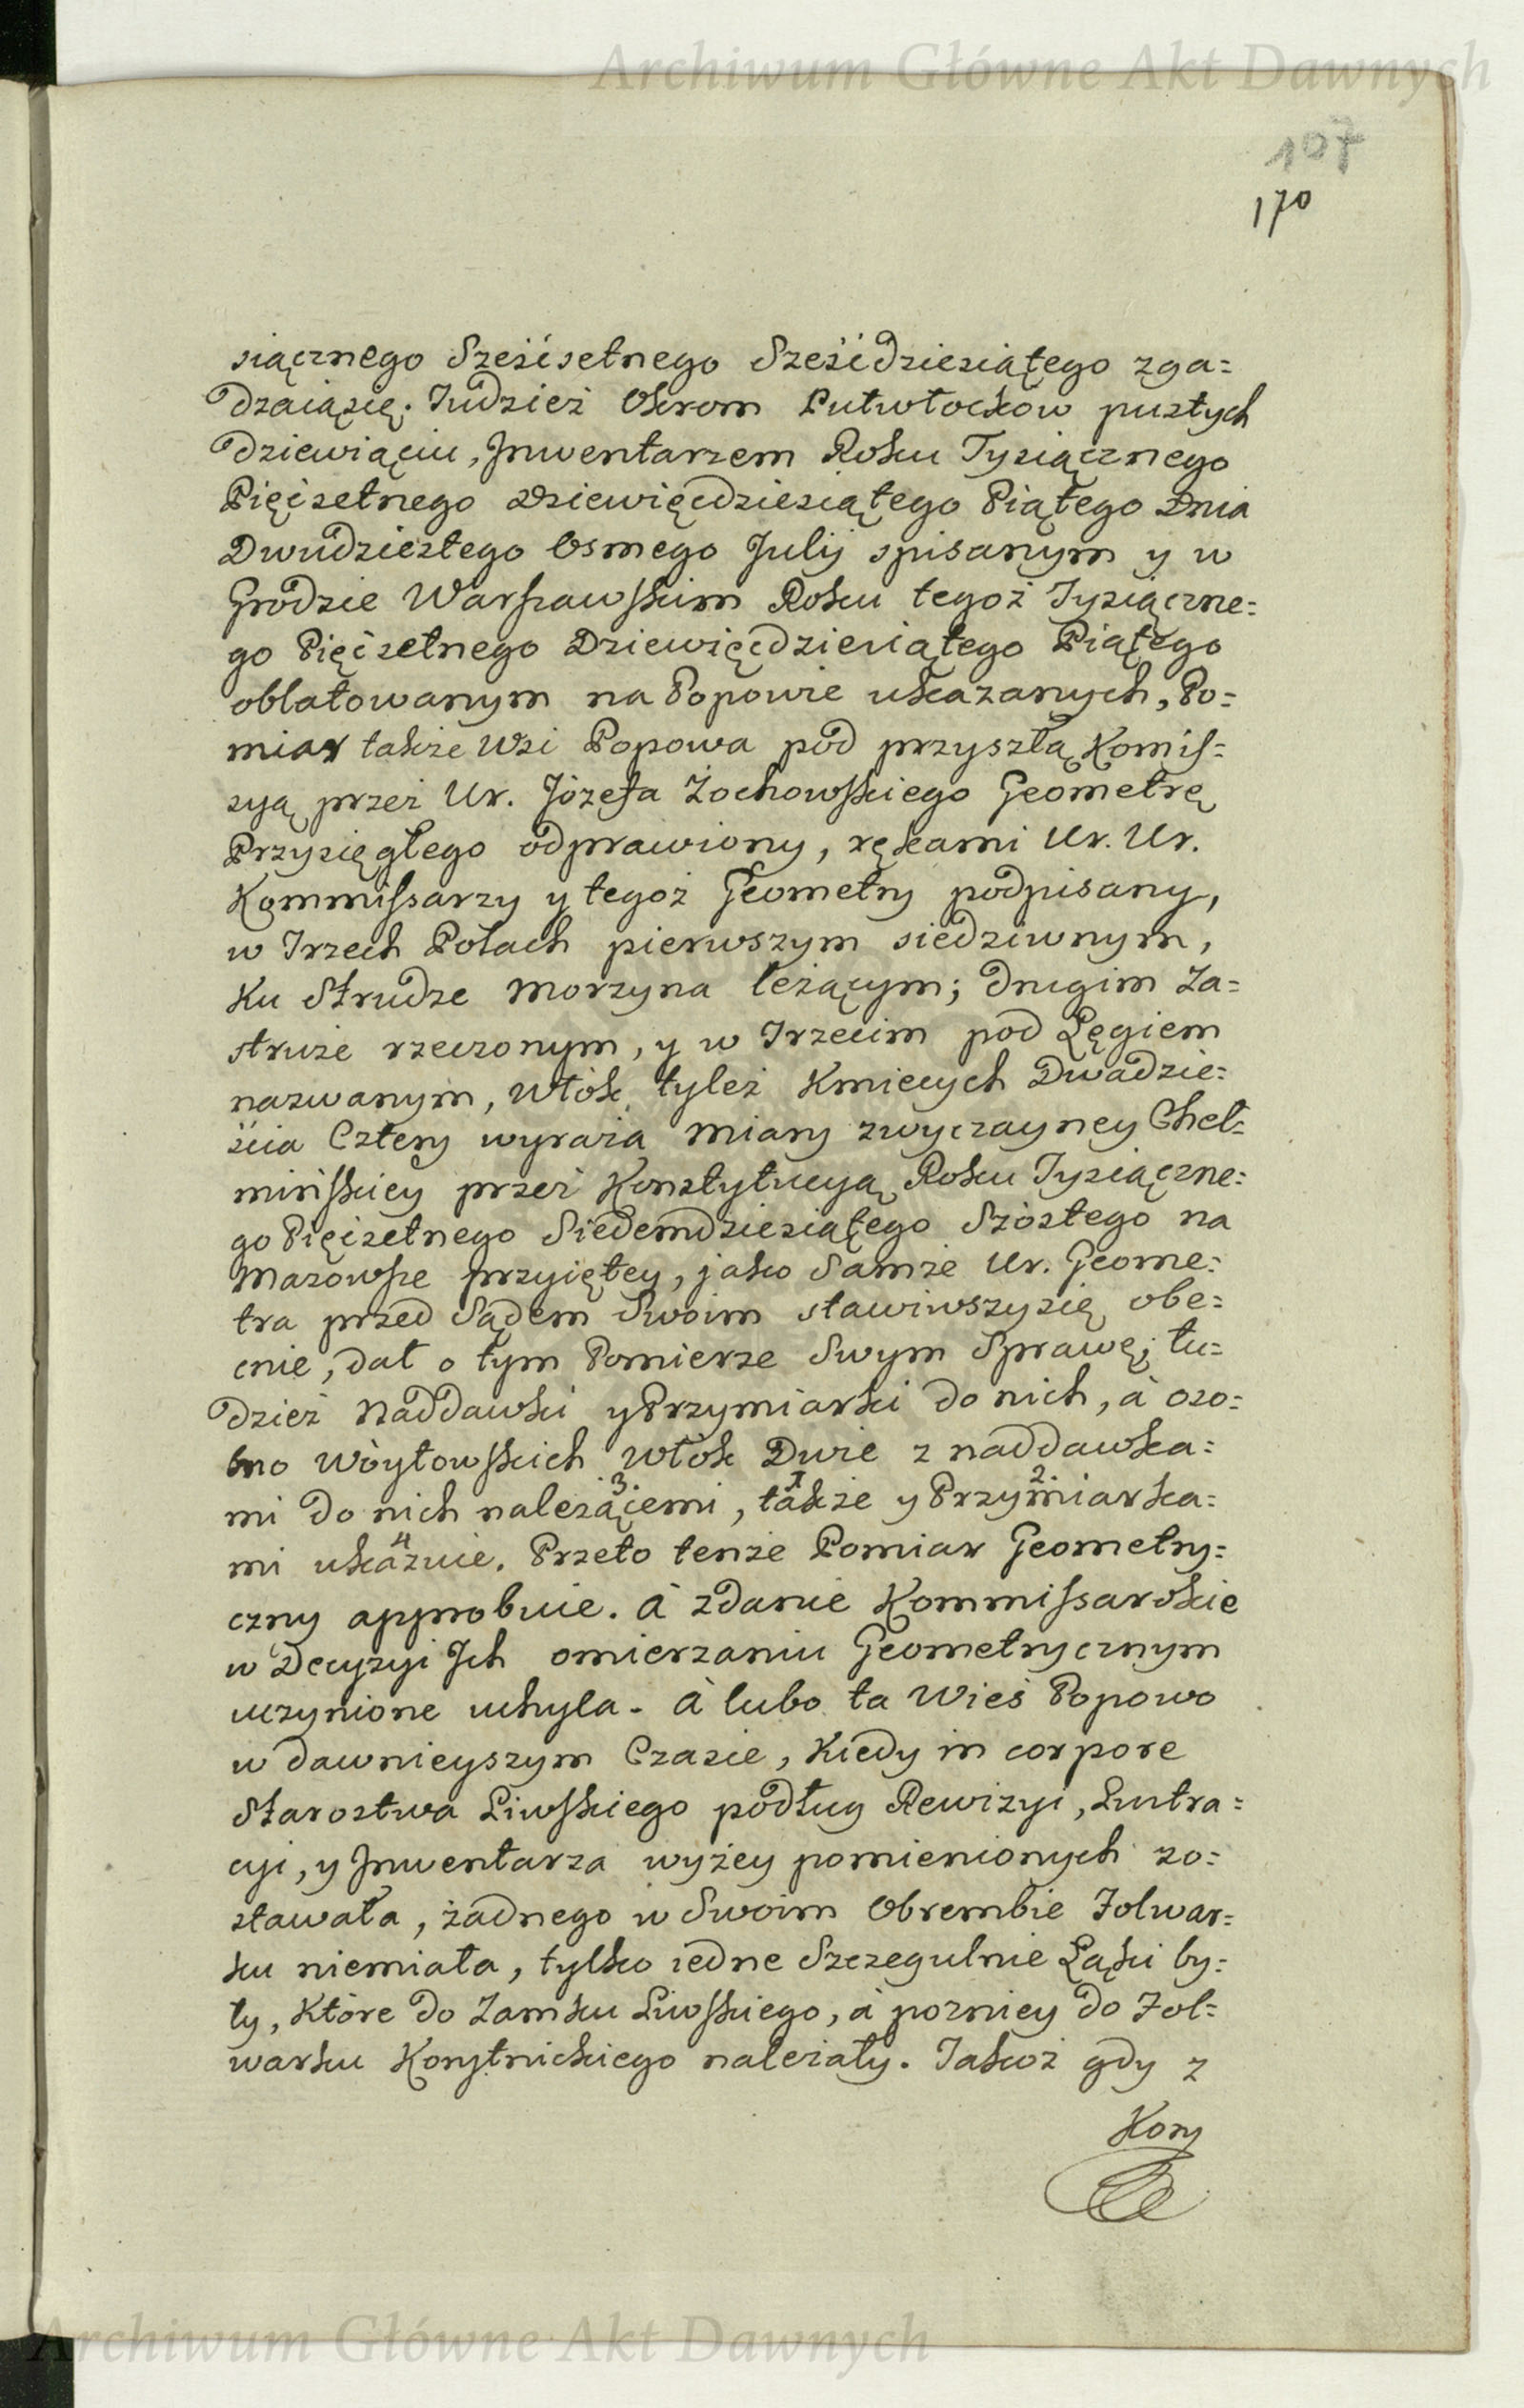 Archiwum Główne Akt Dawnych
107
170
siącznego Sześćsetnego Sześćdziesiątego zga=
dzaiąsię. Tudzież Okrom Pułwłockow pustych
Dziewiąciu, Jnwentarzem Roku Tysiącznego
Pięćsetnego Dziewięćdziesiątego Piątego Dnia
Dwudziestego Osmego Julij spisanym y w
Grodzie Warszawskim Roku tegoż Tysiączne=
go Pięćsetnego Dziewięćdziesiątego Piątego
oblatowanym na Popowie ukazanych, Po=
miar także Wsi Popowa pod przyszłą Komis=
syą przez Ur. Józefa Żochowskiego Geometrę
Przysięgłego odprawiony, rękami Ur. Ur.
Kommissarzy y tegoż Geometry podpisany,
w Trzech Polach pierwszym siedziwnym,
Ku Strudze Morzyna leżącym; drugim Za=
struże rzeczonym, y w Trzecim pod Lęgiem
nazwanym, Włók tyleż Kmiecych Dwadzie=
ścia Cztery wyraża miary zwyczayney Cheł=
mińskiey przez Konstytucyą Roku Tysiączne=
go Pięćsetnego Siedemdziesiątego Szóstego na
Mazowsze przyiętey, jako Samże Ur. Geome=
tra przed Sądem Swoim stawiwszysię obe=
cnie, dał o tym Pomierze Swym Sprawę; tu=
dzież Naddawki y Przymiarki do nich, à oso=
bno Wóytowskich Włók Dwie z naddawka=
mi do nich należącemi, także y Przymiarka=
3. 1 2.
mi ukazuie. Przeto tenże Pomiar Geometry=
4
czny approbuie. à zdanie Kommissarskie
w Decyzyi Jch omierzaniu Geometrycznym
uczynione uchyla. à lubo ta Wieś Popowo
w dawnieyszym Czasie, Kiedy in corpore
Starostwa Liwskiego podług Rewizyi, Lustra=
cyi, y Jnwentarza wyżey pomienionych zo=
stawała, żadnego w Swoim Obrembie Folwar=
ku niemiała, tylko iedne Szczegulnie Łąki by=
ły, Które do Zamku Liwskiego, à pozniey do Fol=
warku Korytnickiego należały. Jakoż gdy z
Kory
Archiwum Główne Akt Dawnych